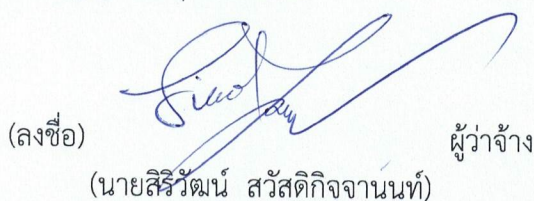 (ลงชื่อ) ผู้ว่าจ้าง
(นายสิริวัฒน์ สวัสดิกิจจานนท์)